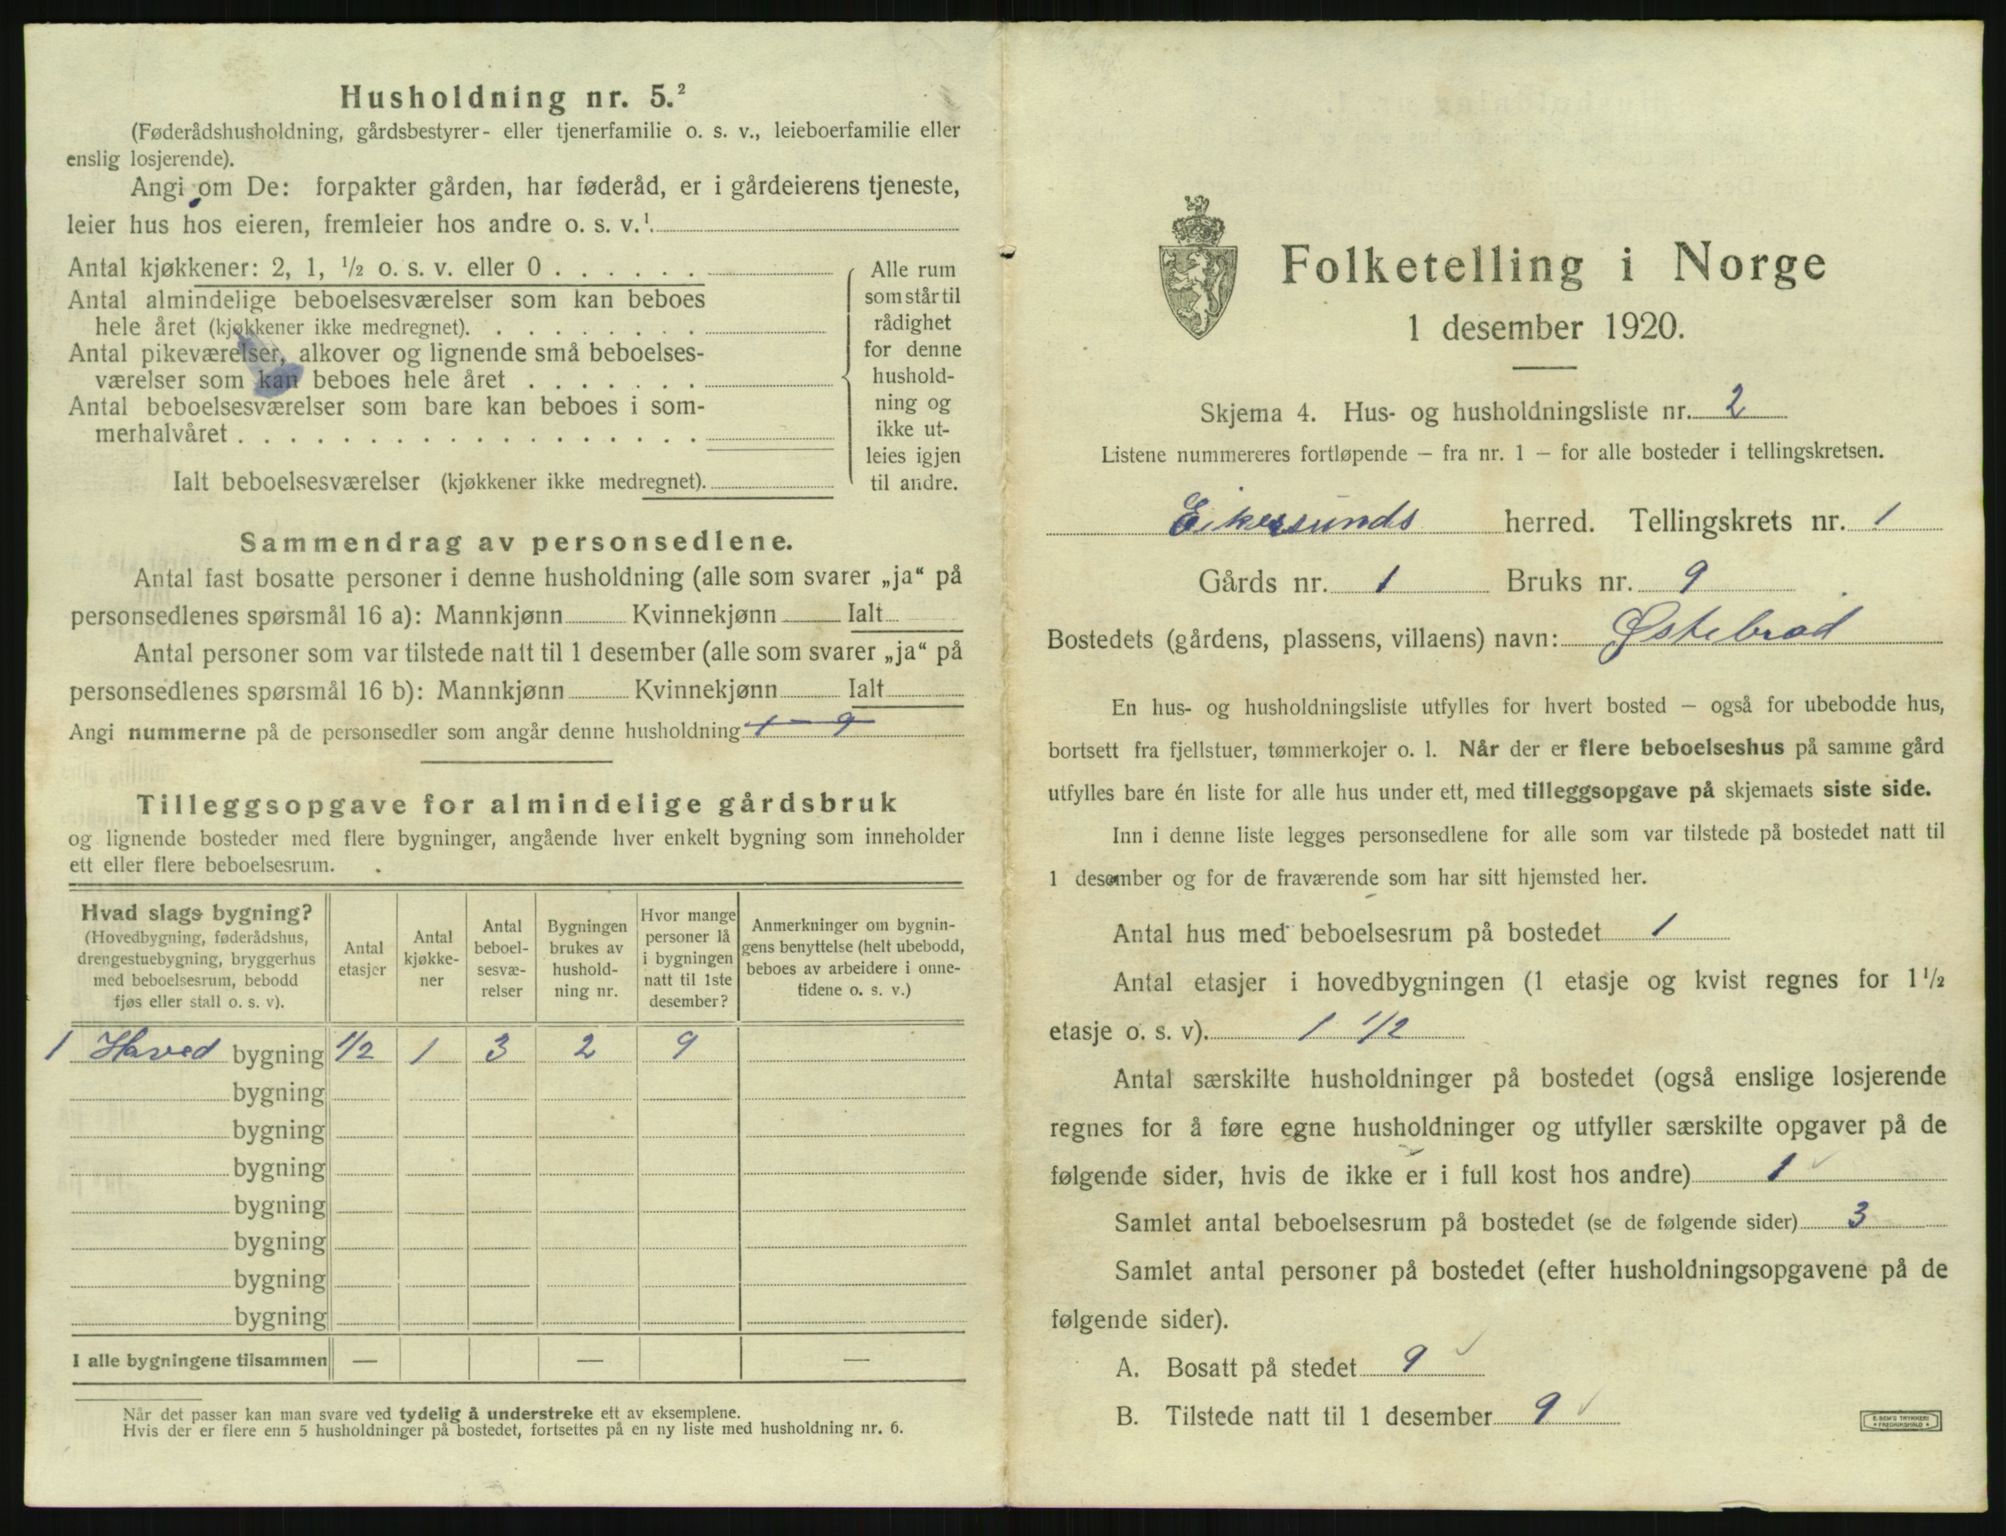 Husholdning nr. 5.²
(Føderådshusholdning, gårdsbestyrer- eller tjenerfamilie o. s. v., leieboerfamilie eller
enslig losjerende).
Angi om De: forpakter gården, har føderåd, er i gårdeierens tjeneste,
leier hus hos eieren, fremleier hos andre o. s. v.¹
Antal kjøkkener: 2, 1, ½ o. s. v. eller 0 . . . . . .
Antal almindelige beboelsesværelser som kan beboes
hele året (kjøkkener ikke medregnet). . . . . . . . .
Antal pikeværelser, alkover og lignende små beboelses-
værelser som kan beboes hele året . . . . . . .
Antal beboelsesværelser som bare kan beboes i som-
merhalvåret . . . . . . . . . . . . . . . . . .
Ialt beboelsesværelser (kjøkkener ikke medregnet).
Alle rum
som står til
rådighet
for denne
hushold-
ning og
ikke ut-
leies igjen
til andre.
Sammendrag av personsedlene.
Antal fast bosatte personer i denne husholdning (alle som svarer „ja“ på
personsedlenes spørsmål 16 a): Mannkjønn Kvinnekjønn Ialt
Antal personer som var tilstede natt til 1 desember (alle som svarer „ja“ på
personsedlenes spørsmål 16 b): Mannkjønn Kvinnekjønn Ialt
Angi nummerne på de personsedler som angår denne husholdning 1 – 9
Tilleggsopgave for almindelige gårdsbruk
og lignende bosteder med flere bygninger, angående hver enkelt bygning som inneholder
ett eller flere beboelsesrum.
Hvad slags bygning?
(Hovedbygning, føderådshus,
drengestuebygning, bryggerhus
med beboelsesrum, bebodd
fjøs eller stall o. s. v).
Antal
etasjer
Antal
kjøkke-
ner
Antal
beboel-
sesvæ-
relser
Bygningen
brukes av
hushold-
ning nr.
Hvor mange
personer lå
i bygningen
natt til 1ste
desember?
Anmerkninger om bygnin-
gens benyttelse (helt ubebodd,
beboes av arbeidere i onne-
tidene o. s. v.)
1 Hoved bygning 1/2 1 3 2 9
bygning
bygning
bygning
bygning
bygning
bygning
bygning
I alle bygningene tilsammen — — —
Når det passer kan man svare ved tydelig å understreke ett av eksemplene.
Hvis der er flere enn 5 husholdninger på bostedet, fortsettes på en ny liste med husholdning nr. 6.
Folketelling i Norge
1 desember 1920.
Skjema 4. Hus- og husholdningsliste nr. 2
Listene nummereres fortløpende – fra nr. 1 – for alle bosteder i tellingskretsen.
Eikersunds herred. Tellingskrets nr. 1
Gårds nr. 1 Bruks nr. 9
Bostedets (gårdens, plassens, villaens) navn: Østebrød
En hus- og husholdningsliste utfylles for hvert bosted – også for ubebodde hus,
bortsett fra fjellstuer, tømmerkojer o. l. Når der er flere beboelseshus på samme gård
utfylles bare én liste for alle hus under ett, med tilleggsopgave på skjemaets siste side.
Inn i denne liste legges personsedlene for alle som var tilstede på bostedet natt til
1 desember og for de fraværende som har sitt hjemsted her.
Antal hus med beboelsesrum på bostedet 1
Antal etasjer i hovedbygningen (1 etasje og kvist regnes for 1½
etasje o. s. v). 1 1/2
Antal særskilte husholdninger på bostedet (også enslige losjerende
regnes for å føre egne husholdninger og utfyller særskilte opgaver på de
følgende sider, hvis de ikke er i full kost hos andre) 1
Samlet antal beboelsesrum på bostedet (se de følgende sider) 3
Samlet antal personer på bostedet (efter husholdningsopgavene på de
følgende sider).
A. Bosatt på stedet 9
B. Tilstede natt til 1 desember 9
E. SEM'S TRYKKERI
FREDRIKSHALD